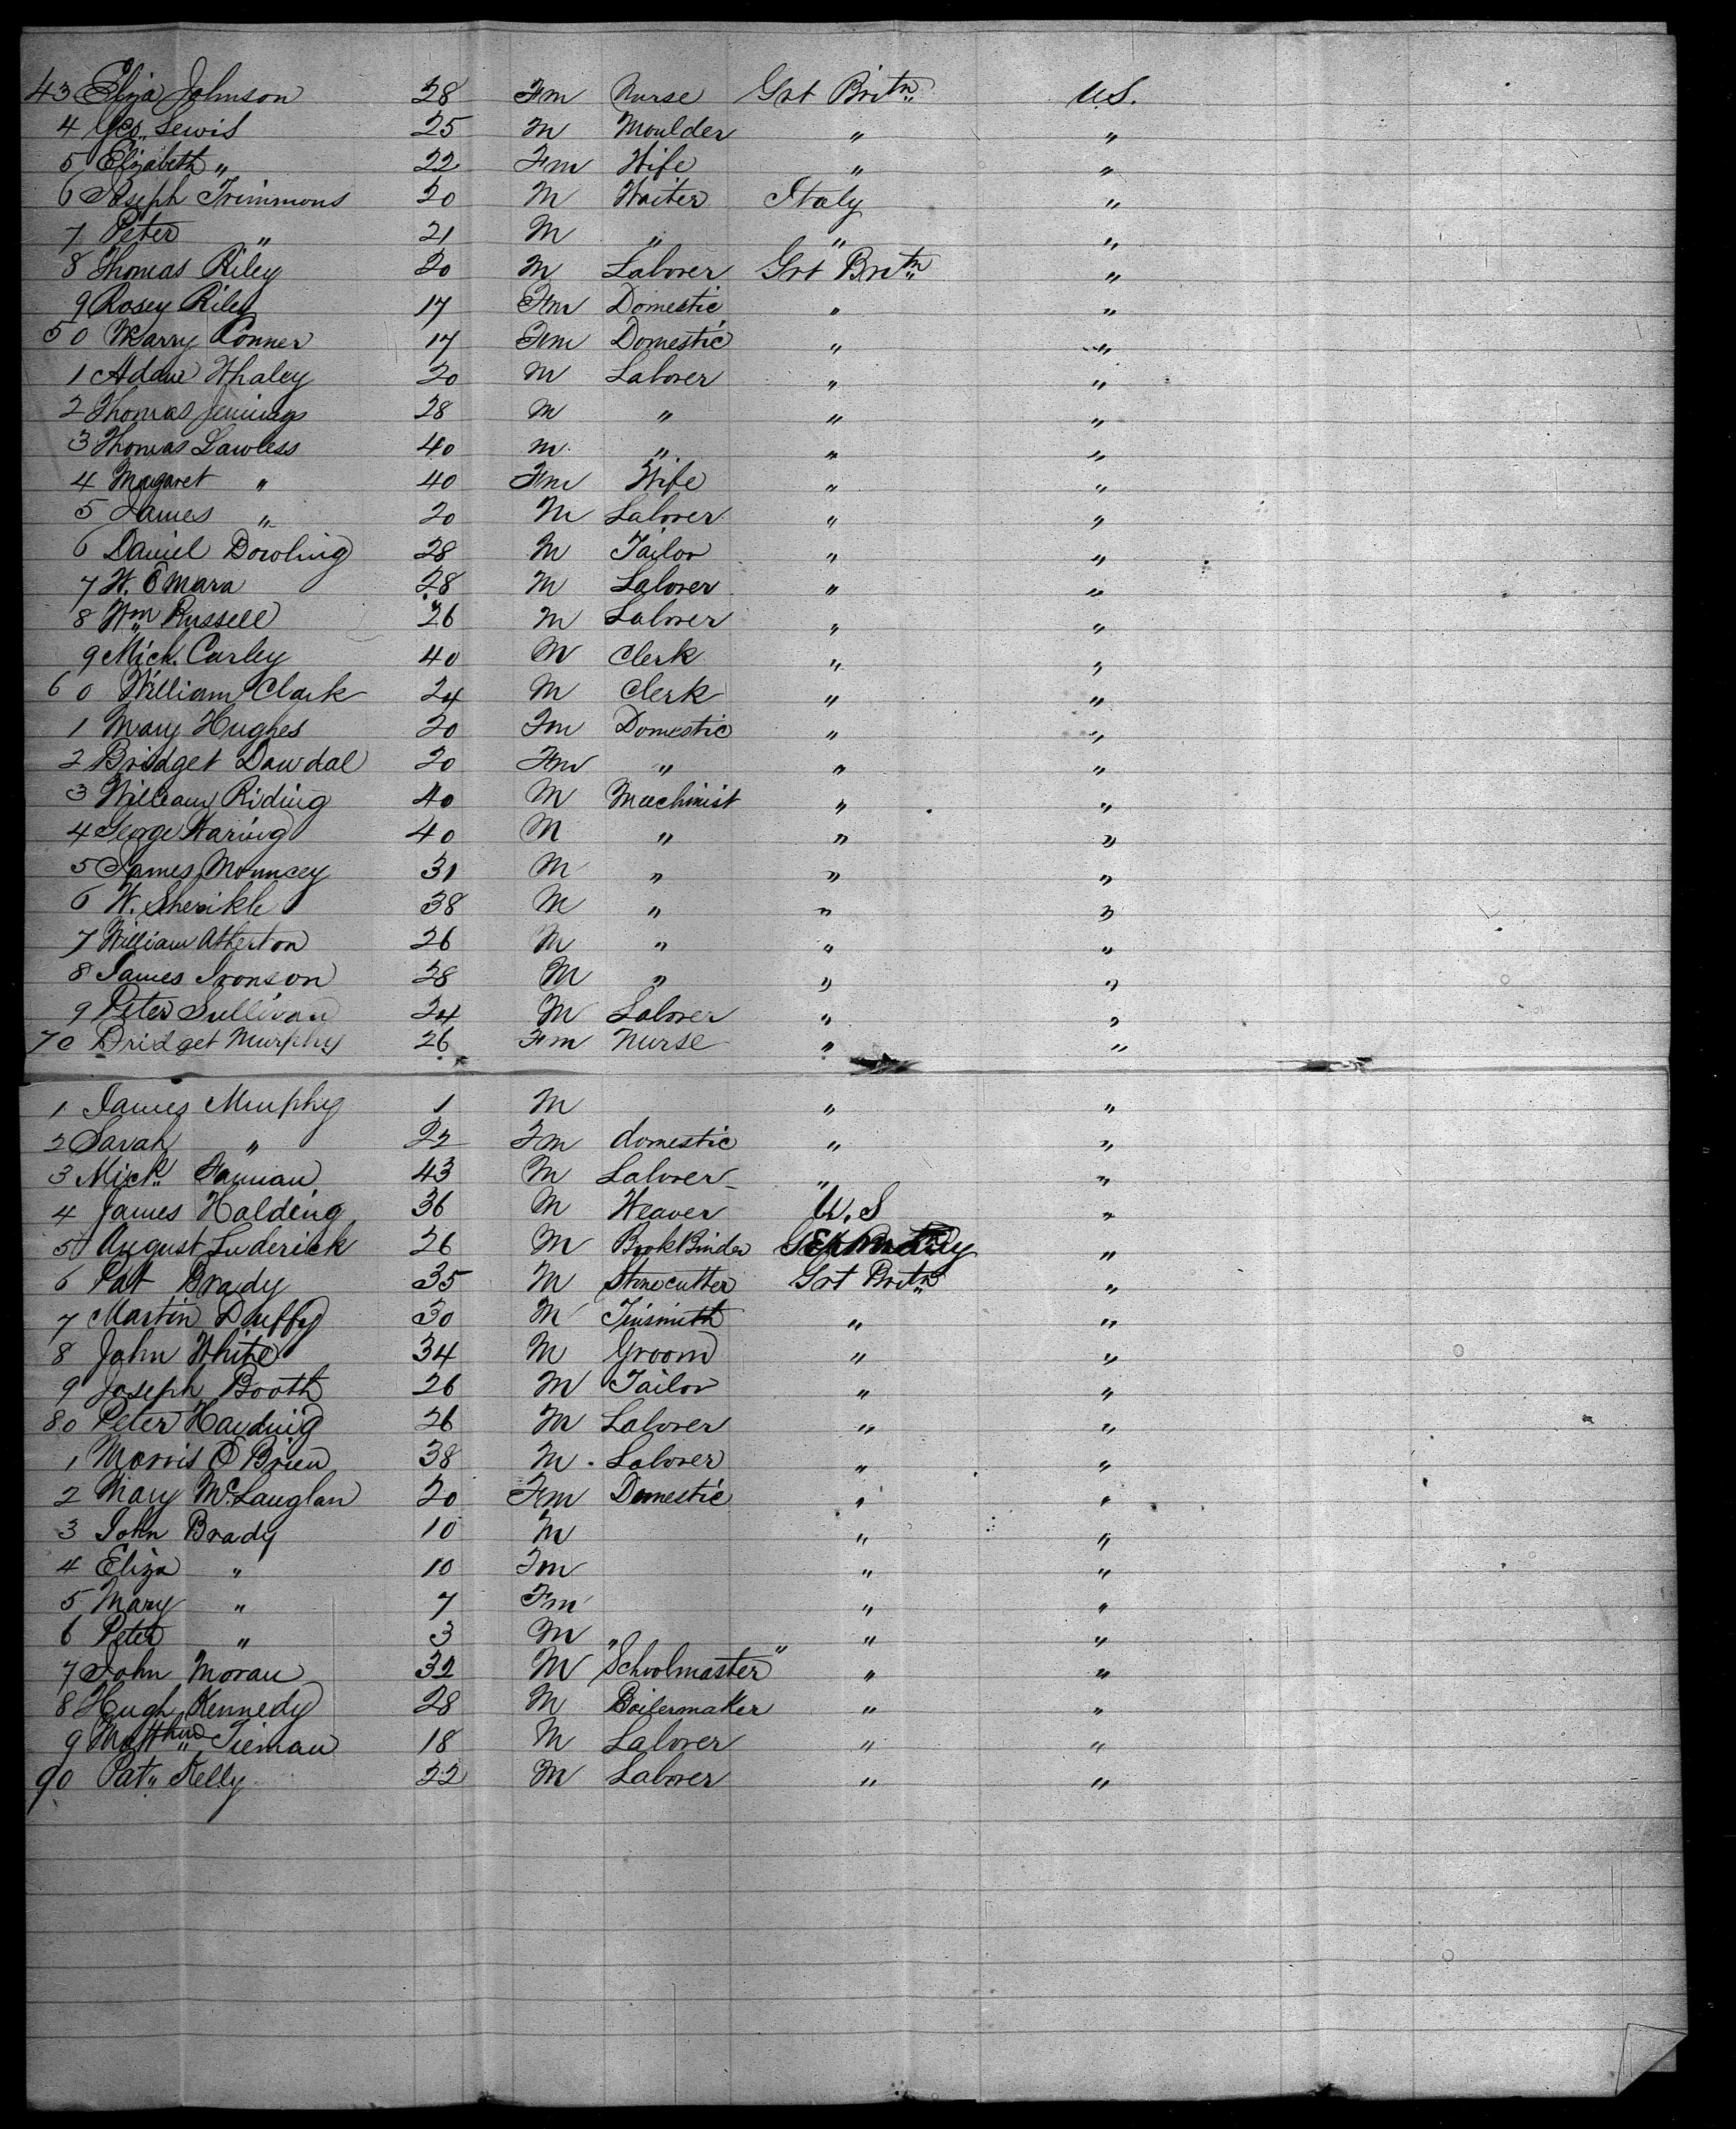 43 Eliza Johnson 28 Fm Nurse Grt Britn U.S.
4 Geo. Lewis 25 M Moulder " "
5 Elizabeth " 22 Fm Wife " "
6 Joseph Trimmons 20 M Waiter Italy "
7 Peter " 21 M " " "
8 Thomas Riley 20 M Laborer Grt Britn "
9 Rosey Riley 17 Fm Domestic " "
50 Marry Conner 17 Fm Domestic " "
1 Adam Whaley 20 M Laborer " "
2 Thomas Jennings 28 M " " "
3 Thomas Lawless 40 M " " "
4 Magaret " 40 Fm Wife " "
5 James " 20 M Laborer " "
6 Daniel Dowling 28 M Tailor " "
7 W. O'Mara 28 M Laborer " "
8 Wm Russell 26 M Laborer " "
9 Mich. Carley 40 M Clerk " "
60 William Clark 24 M Clerk " "
1 Mary Hughes 20 Fm Domestic " "
2 Bridget Dawdal 20 Fm " " "
3 William Riding 40 M Machinist " "
4 George Waring 40 M " " "
5 James Mouncey 31 M " " "
6 W. 38 M " " "
7 William Atherton 26 M " " "
8 James Ironson 28 M " " "
9 Peter Sullivan 24 M Laborer " "
70 Bridget Murphy 26 Fm Nurse " "
1 James Murphy 1 M " "
2 Sarah " 22 Fm domestic " "
3 Mick. 43 M Laborer " "
4 James Holding 36 M Weaver U.S "
5 August Luderick 26 M BookBinder Germany "
6 Pat Brady 35 M Stonecutter Grt Britn "
7 Martin Duffy 30 M Tinsmith " "
8 John White 34 M Groom " "
9 Joseph Booth 26 M Tailor " "
80 Peter Harding 26 M Laborer " "
1 Morris O'Brien 38 M. Laborer " "
2 Mary McLauglan 20 Fm Domestic " "
3 John Brady 10 M " "
4 Eliza " 10 Fm " "
5 Mary " 7 Fm " "
6 Peter " 3 M " "
7 John Moran 32 M "Schoolmaster" " "
8 Hugh Kennedy 28 M Boilermaker " "
9 Matthew Tiernan 18 M Laborer " "
90 Pat" Kelly 22 M Laborer " "